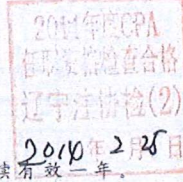 2011年度CPA
任职资格检查合格
辽宁注协检(2)
2014年2月25日
续有效一年。